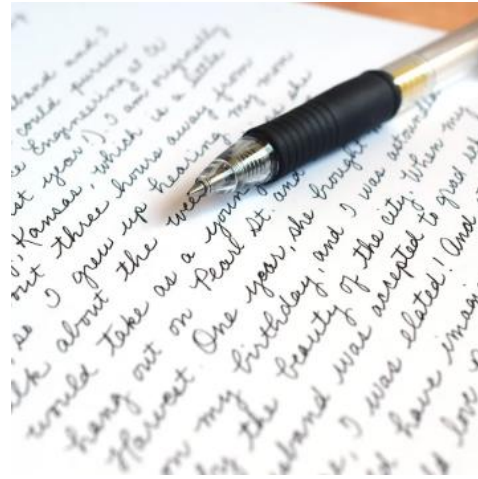 band and I
could pursue
e Engineering at CU
st year). I am originally
, Kansas, which is a little
out three hours away from
se I grew up hearing my mom
lk about the she
would take as a young and
hang out on Pearl St. and
Harvest. One year, she brought
on my birthday, and I was astounded
by the beauty of the city. When my
sband was accepted to grad
I was elated! And
have imagi
ld love